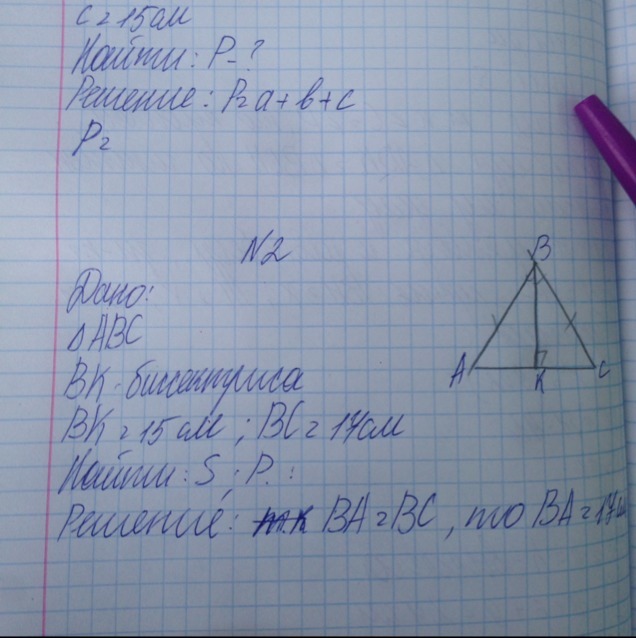 c = 15 см
Найти: P - ?
Решение: P = a + b + c
P =
N2
Дано:
B
△ABC
A K C
BK - биссектриса
BK = 15 см ; BC = 17 см
Найти: S ; P. :
Решение: т.к BA = BC, то BA = 17 см